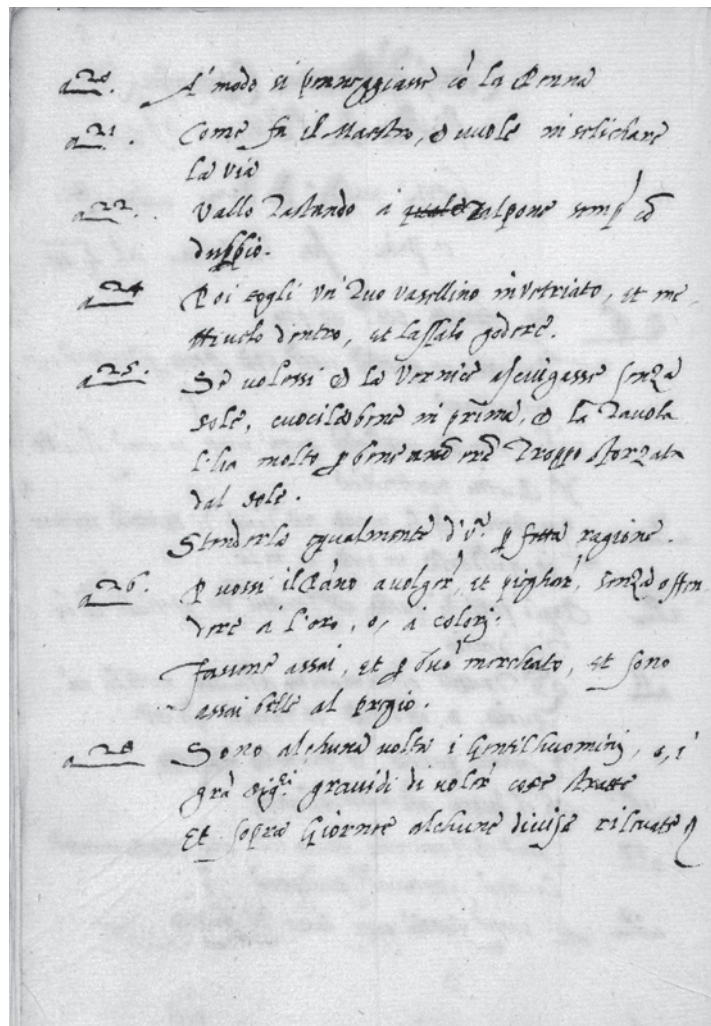 a 20. A' modo si penneggiasse cō la Penna
a 21. Come fa il Maestro, che vuole miselichare
la via
a 22. Vallo Tastando a talpone semp̄ cō
dubbio.
a 24 Poi togli vn' Tuo vasellino invetriato, et me
ttiuelo dentro, et lassalo godere.
a 25. Se uolessi che la Vernice asciugasse senza
sole, cuocila bene in prima, che la Tauola
l'ha molto p bene non essere Troppo sforzata
dal sole.
Stenderla equalmente d'vna p fetta ragione.
a 26. Puossi il Pano auolger', et pieghar', senza offen
dere a l'oro, o, a i colorj.
Fassene assai, et p buo' merchato, et sono
assai belle al pregio.
a 28 Sono alchuna uolta i Gentilhuominj, o, i
grā sig.ri grauidi di uoler' cose stratte
Et sopra Giornee alchune diuise rileuate